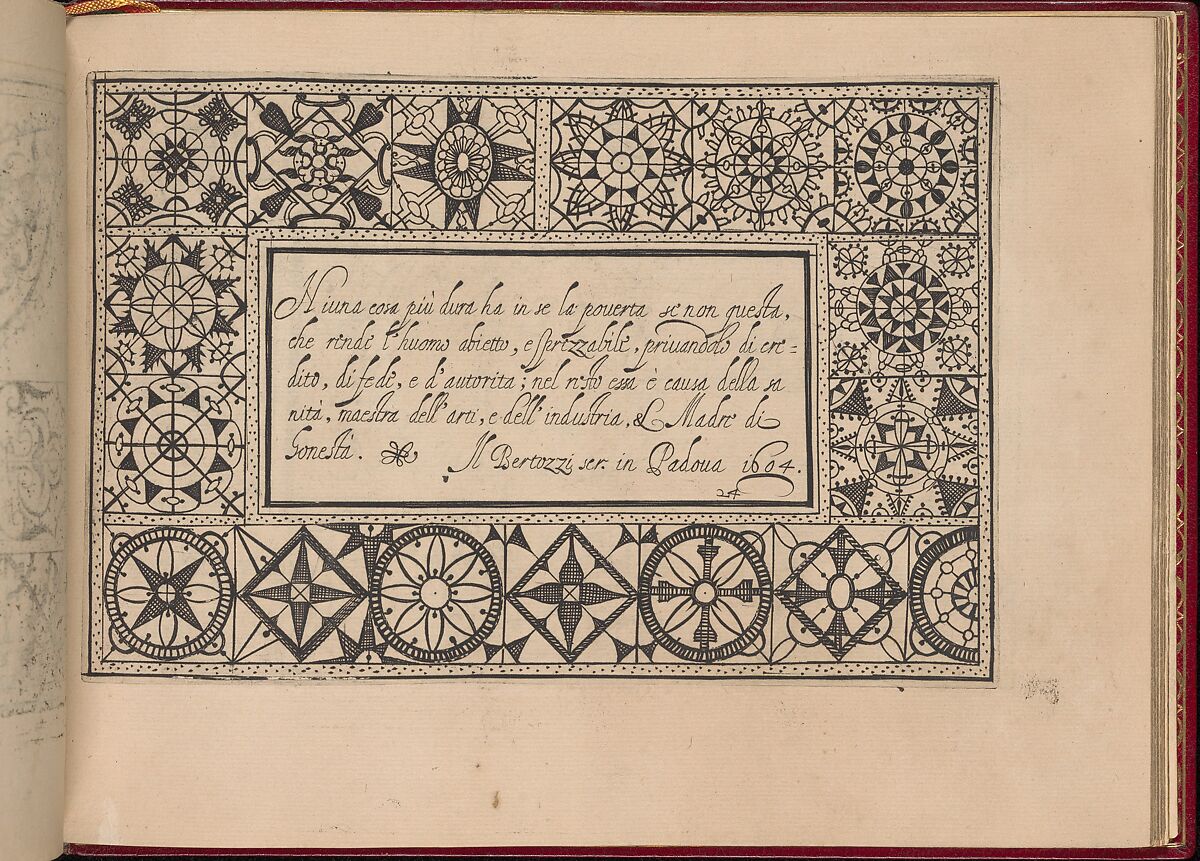 Niuna cosa più dura ha in se la pouerta se non questa,
che rende l'huomo abietto, e sprezzabile, priuandolo di cre=
dito, di fede, e d'autorita; nel resto essa è causa della sa
nità, maestra dell'arti, e dell'industria, & Madre di
honestà. Il Bertozzi scr. in Padoua 1604.
24